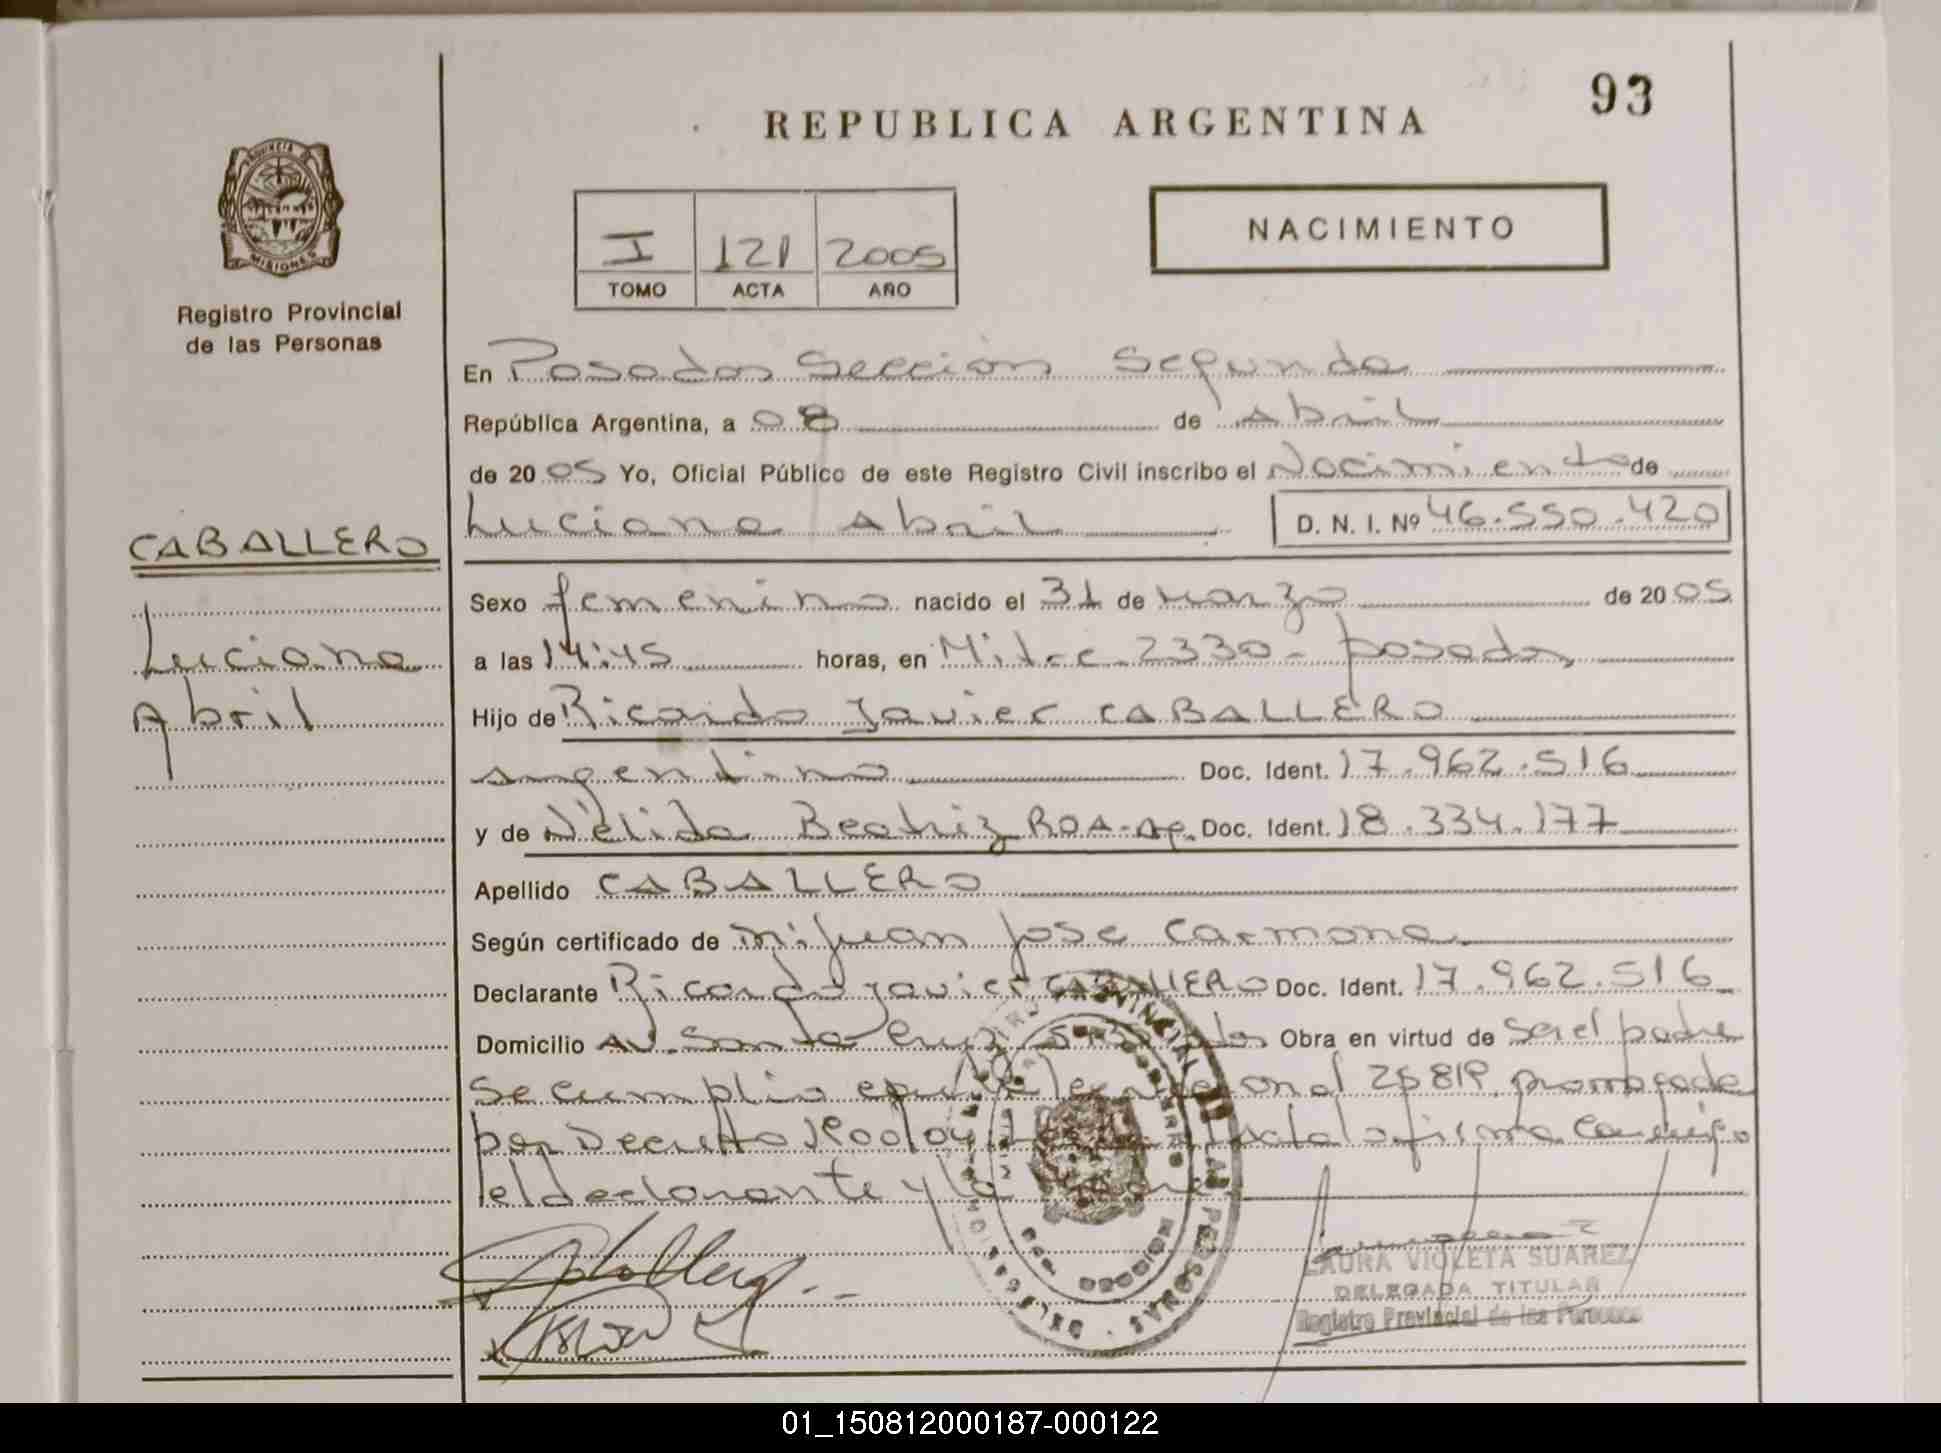 93
REPUBLICA ARGENTINA
PROVINCIA DE
MISIONES
Registro Provincial
de las Personas
I 121 2005
TOMO ACTA AÑO
NACIMIENTO
En Posadas Sección Segunda
República Argentina, a 08 de Abril
de 2005 Yo, Oficial Público de este Registro Civil inscribo el Nacimiento de
Luciana Abril D. N. I. Nº 46.550.420
CABALLERO
Luciana
Abril
Sexo femenino nacido el 31 de Marzo de 2005
a las 14:45 horas, en Mitre 2330 - posadas
Hijo de Ricardo Javier CABALLERO
argentino Doc. Ident. 17.962.516
y de Nélida Beatriz ROA-Ap. Doc. Ident. 18.334.177
Apellido CABALLERO
Según certificado de Juan Jose Carmona
Declarante Ricardo Javier CABALLERO Doc. Ident. 17.962.516
Domicilio AV. Santa Cruz Obra en virtud de ser el padre
Se cumplio con la ley nacional 25819, prorrogada
por Decreto firma conmigo
el declarante y la
LAURA VIOLETA SUAREZ
DELEGADA TITULAR
Registro Provincial de las Personas
01_150812000187-000122